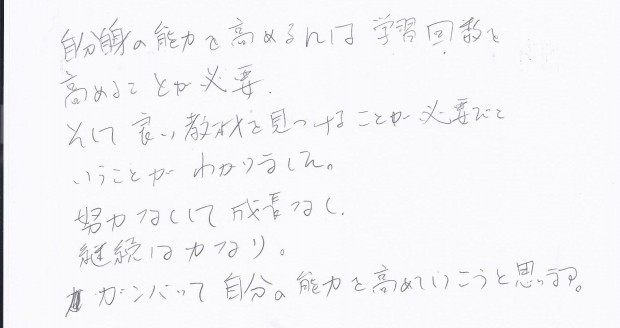 自分自身の能力を高めるには学習回数を
高めることが必要.
そして良い教材を見つけることが必要だと
いうことがわかりました。
努力なくして成長なし.
継続は力なり。
ガンバって自分の能力を高めていこうと思います。